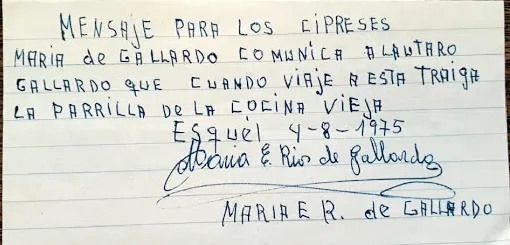 MENSAJE PARA LOS CIPRESES
MARIA de GALLARDO COMUNICA A LAUTARO
GALLARDO QUE CUANDO VIAJE A ESTA TRAIGA
LA PARRILLA DE LA COCINA VIEJA
Esquel 4-8-1975
Maria E. Rios de Gallardo
MARIA E R. de GALLARDO